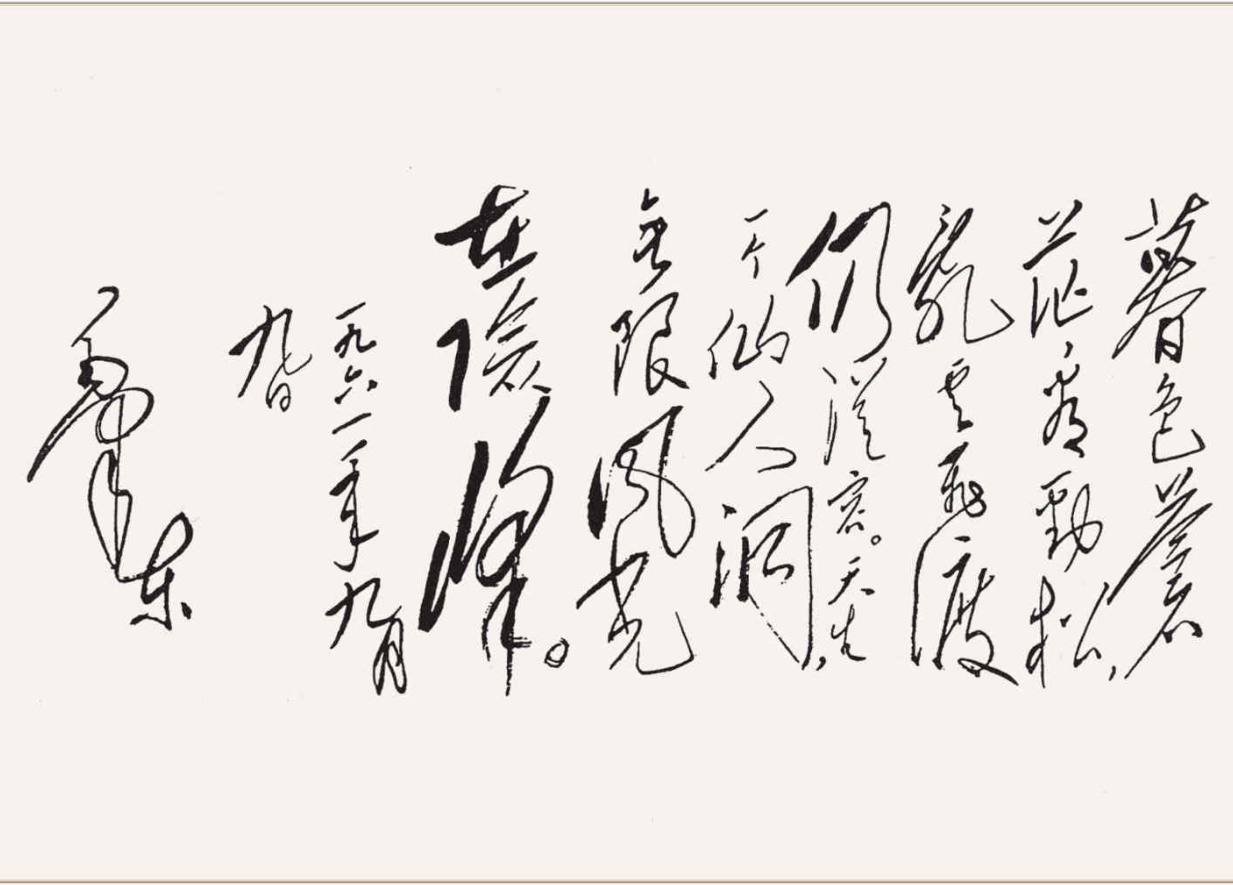 暮色苍
茫看劲松,
乱云飞渡
仍从容。天生
一个仙人洞,
无限风光
在险峰。
一九六一年九月
九日
毛泽东